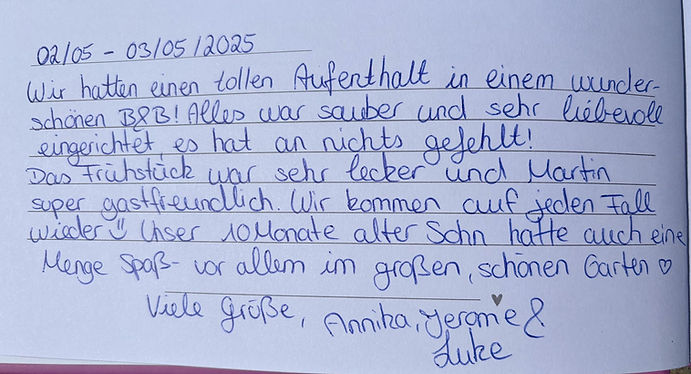 02/05 - 03/05/2025
Wir hatten einen tollen Aufenthalt in einem wunder-
schönen B&B! Alles war sauber und sehr liebevoll
eingerichtet es hat an nichts gefehlt!
Das Frühstück war sehr lecker und Martin
super gastfreundlich. Wir kommen auf jeden Fall
wieder ü Unser 10 Monate alter Sohn hatte auch eine
Menge Spaß - vor allem im großen, schönen Garten ♡
Viele Grüße, Annika, Jerome &
Luke